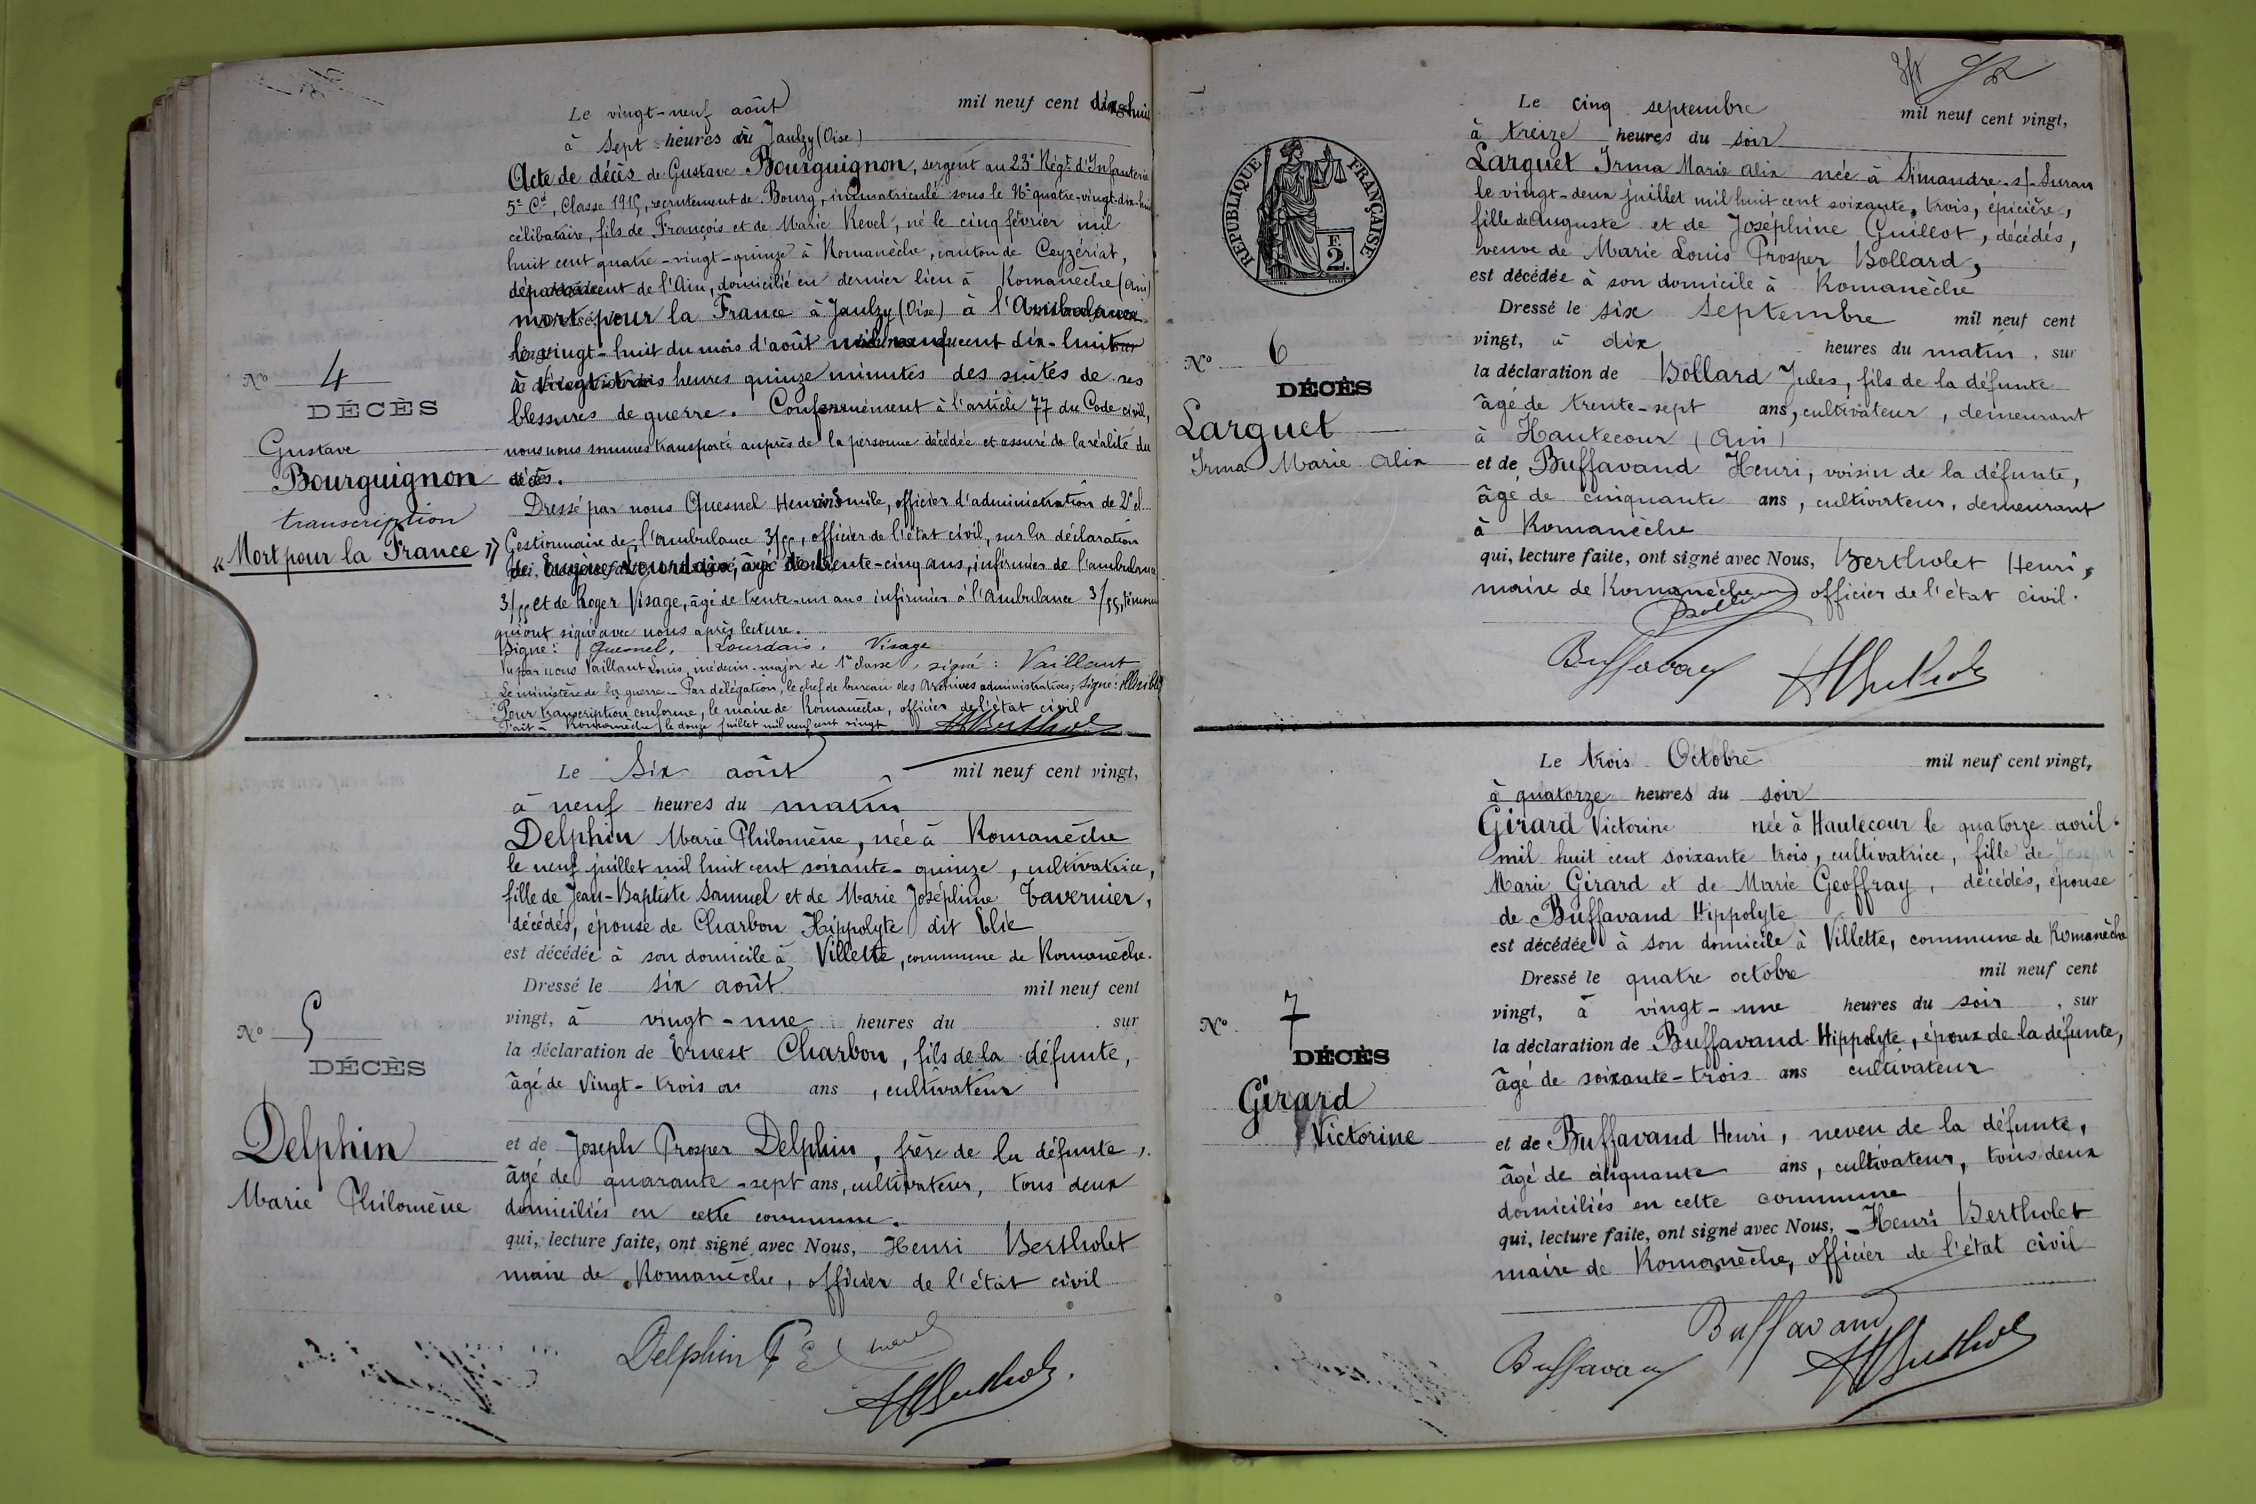 Le vingt-neuf août mil neuf cent dix-huit
à sept heures à Jaulzy (Oise)
Acte de décès de Gustave Bourguignon, sergent au 23e Régt d'Infanterie
5e Cie, Classe 1915, recrutement de Bourg, immatriculé sous le No quatre-vingt-dix-huit
célibataire, fils de François et de Marie Revel, né le cinq février mil
huit cent quatre-vingt-quinze à Romanèche, canton de Ceyzériat,
département de l'Ain, domicilié en dernier lieu à Romanèche (Ain)
mort pour la France à Jaulzy (Oise) à l'Ambulance
le vingt-huit du mois d'août mil neuf cent dix-huit
à vingt-trois heures quinze minutes des suites de ses
blessures de guerre. Conformément à l'article 77 du Code civil,
nous nous sommes transporté auprès de la personne décédée et assuré de la réalité du
décès.
Dressé par nous Quesnel Henri Emile, officier d'administration de 2e cl.
Gestionnaire de l'ambulance 3/55, officier de l'état civil, sur la déclaration
de Eugène Lourdais, âgé de trente-cinq ans, infirmier de l'ambulance
3/55 et de Roger Visage, âgé de trente-un ans infirmier à l'Ambulance 3/55, témoins
qui ont signé avec nous après lecture.
Signé : Quesnel, Lourdais, Visage
Vu par nous Vaillant Louis, médecin-major de 1re classe, signé : Vaillant
Le ministère de la guerre - Par délégation, le chef de bureau des Archives administratives; Signé :
Pour transcription conforme, le maire de Romanèche, officier de l'état civil
Fait à Romanèche le douze juillet mil neuf cent vingt
No 4
DÉCÈS
Gustave
Bourguignon
transcription
« Mort pour la France »
Le Six août mil neuf cent vingt,
à neuf heures du matin
Delphin Marie Philomène, née à Romanèche
le neuf juillet mil huit cent soixante-quinze, cultivatrice,
fille de Jean-Baptiste Samuel et de Marie Joséphine Tavernier,
décédés, épouse de Charbon Hippolyte dit Elie
est décédée à son domicile à Villette, commune de Romanèche.
Dressé le six août mil neuf cent
vingt, à vingt-une heures du . sur
la déclaration de Ernest Charbon, fils de la défunte,
âgé de vingt-trois an ans, cultivateur
et de Joseph Prosper Delphin, frère de la défunte,
âgé de quarante-sept ans, cultivateur, tous deux
domiciliés en cette commune.
qui, lecture faite, ont signé avec Nous, Henri Bertholet
maire de Romanèche, officier de l'état civil
Delphin
No 5
DÉCÈS
Delphin
Marie Philomène
RÉPUBLIQUE FRANÇAISE
F.
2.
Le cinq septembre mil neuf cent vingt,
à treize heures du soir
Larguet Irma Marie Alix née à Simandre-s/-Suran
le vingt-deux juillet mil huit cent soixante, trois, épicière,
fille de Auguste et de Joséphine Guillot, décédés,
veuve de Marie Louis Prosper Bollard,
est décédée à son domicile à Romanèche
Dressé le six Septembre mil neuf cent
vingt, à dix heures du matin, sur
la déclaration de Bollard Jules, fils de la défunte
âgé de trente-sept ans, cultivateur, demeurant
à Hautecour (Ain)
et de Buffavand Henri, voisin de la défunte,
âgé de cinquante ans, cultivateur, demeurant
à Romanèche
qui, lecture faite, ont signé avec Nous, Bertholet Henri,
maire de Romanèche officier de l'état civil.
Buffavand
No 6
DÉCÈS
Larguet
Irma Marie Alix
Le trois Octobre mil neuf cent vingt,
à quatorze heures du soir
Girard Victorine née à Hautecour le quatorze avril
mil huit cent soixante trois, cultivatrice, fille de Joseph
Marie Girard et de Marie Geoffray, décédés, épouse
de Buffavand Hippolyte
est décédée à son domicile à Villette, commune de Romanèche
Dressé le quatre octobre mil neuf cent
vingt, à vingt-une heures du soir, sur
la déclaration de Buffavand Hippolyte, époux de la défunte,
âgé de soixante-trois ans cultivateur
et de Buffavand Henri, neveu de la défunte,
âgé de cinquante ans, cultivateur, tous deux
domiciliés en cette commune
qui, lecture faite, ont signé avec Nous, Henri Bertholet
maire de Romanèche, officier de l'état civil
Buffavand
Buffavand
No 7
DÉCÈS
Girard
Victorine